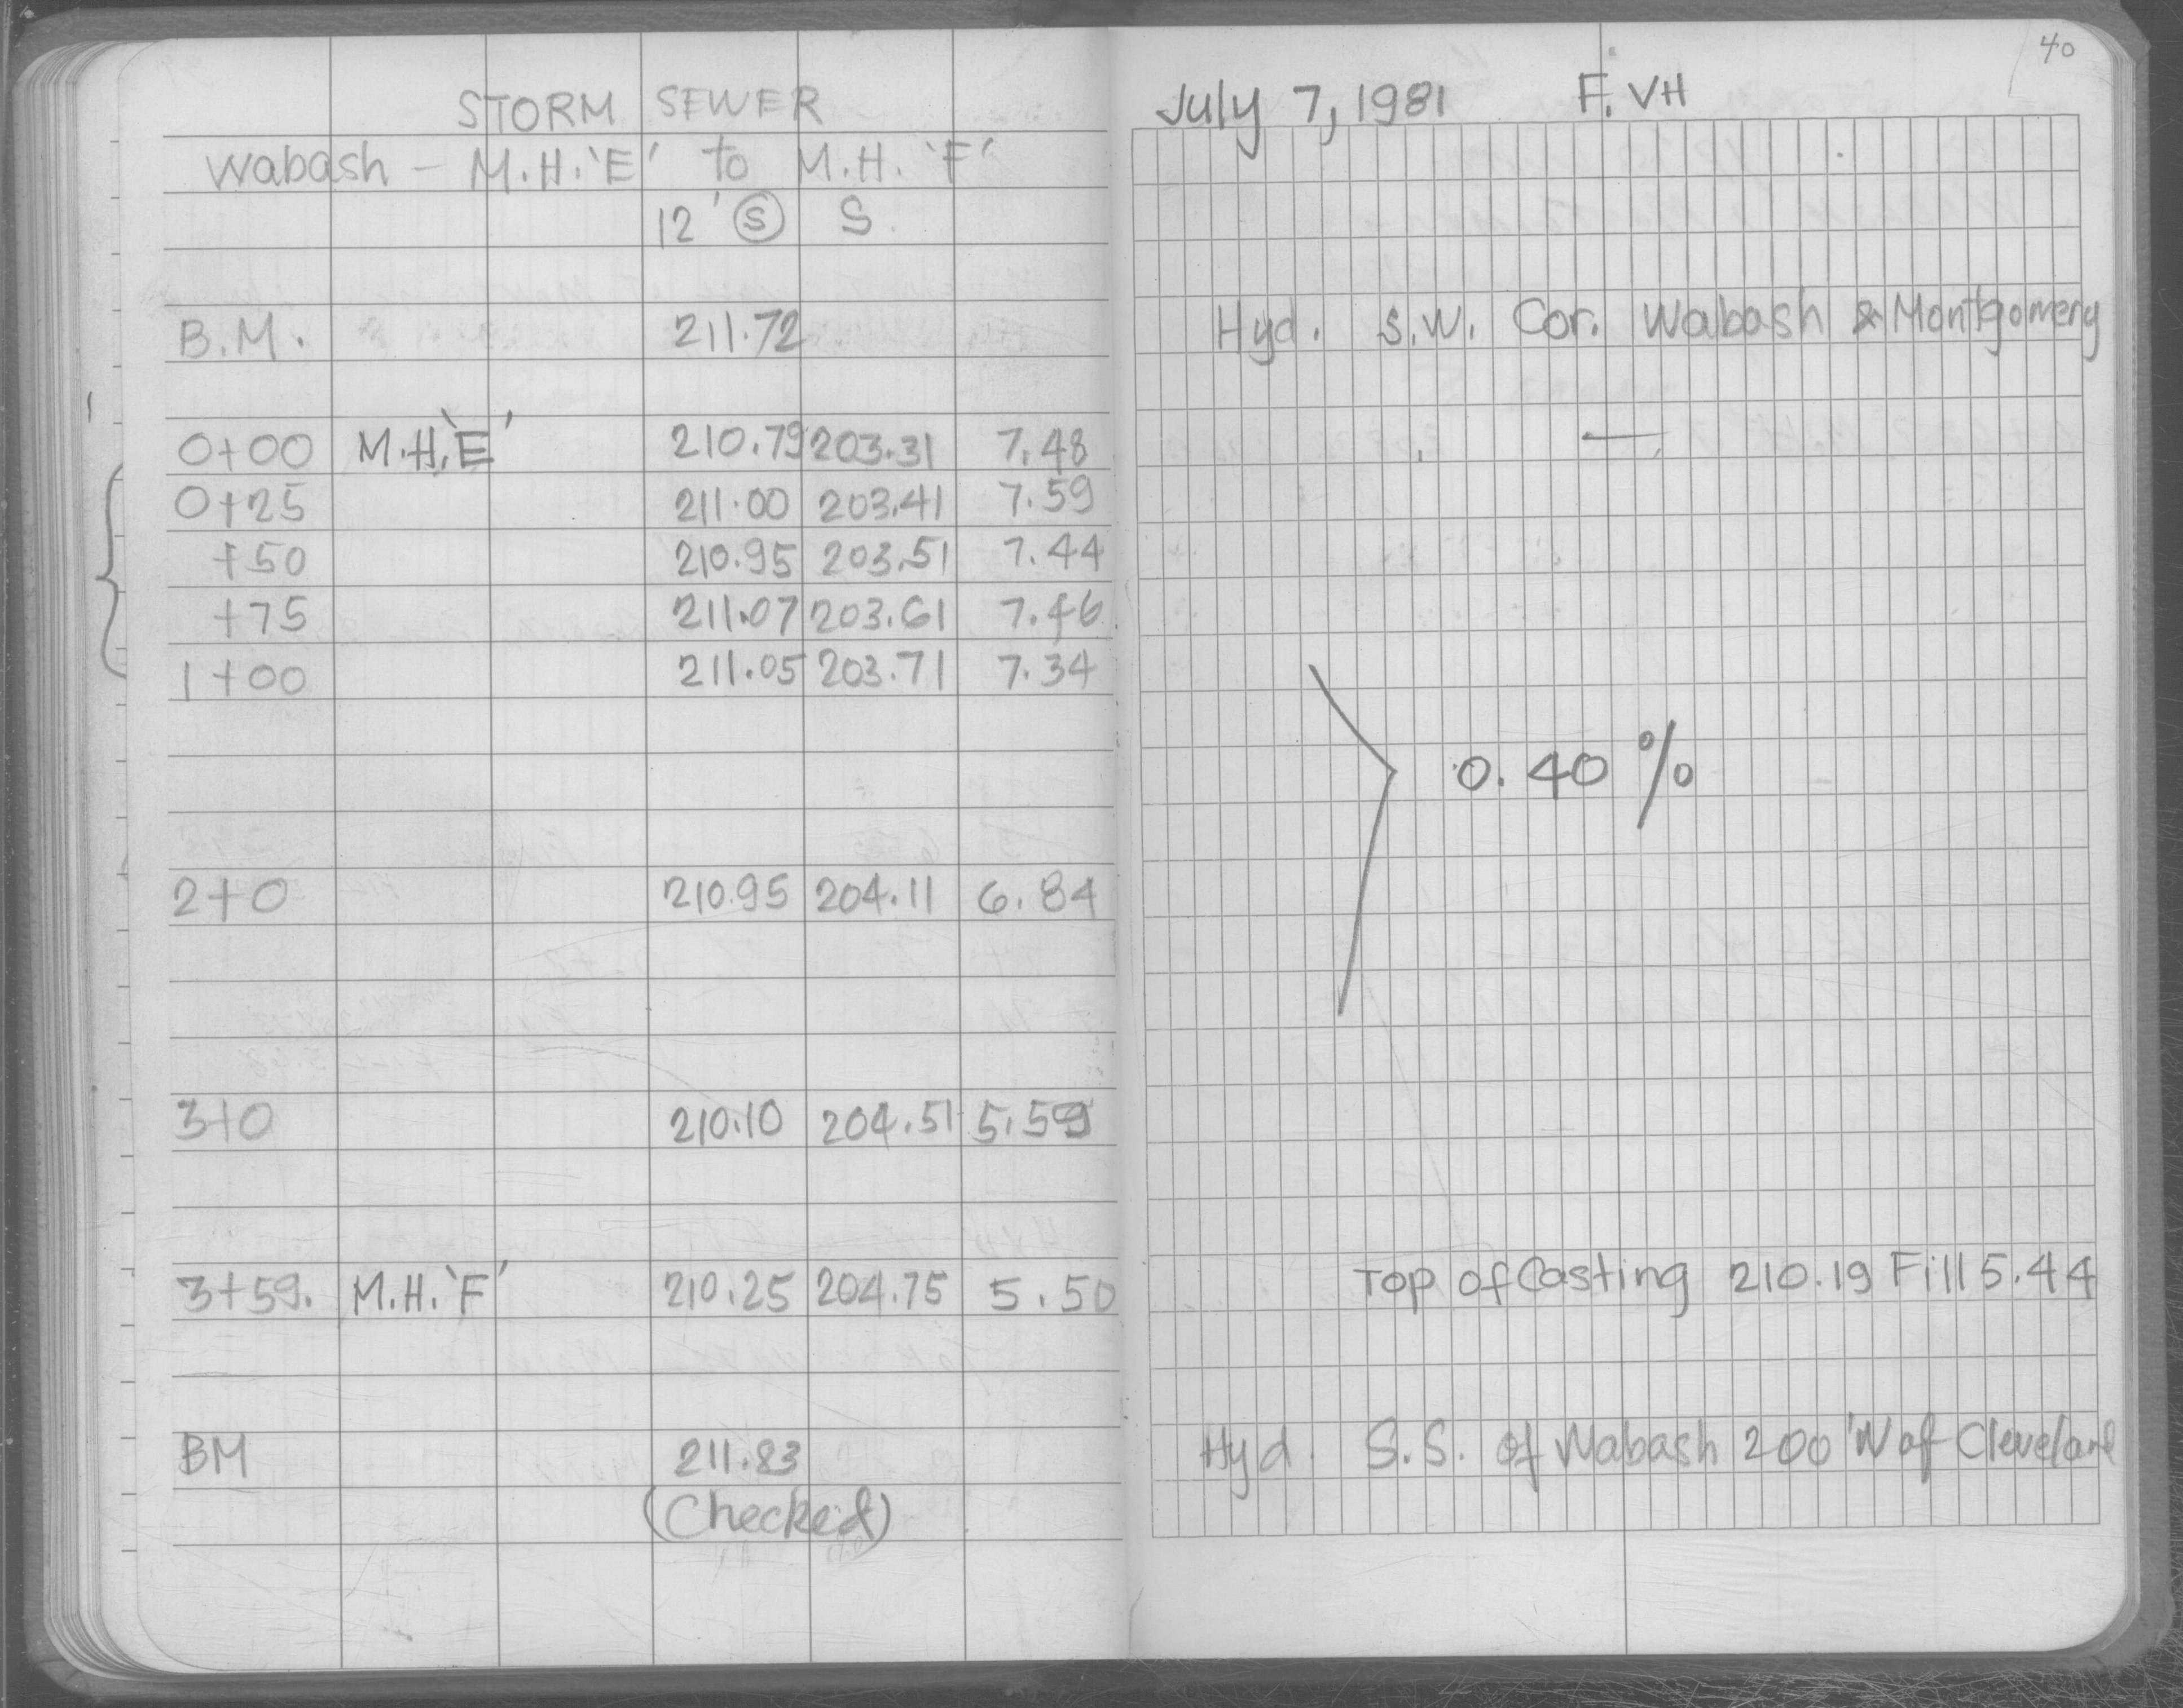 STORM SEWER
Wabash - M.H. 'E' to M.H. 'F'
12' Ⓢ S
B.M. 211.72
0+00 M.H. 'E' 210.79 203.31 7.48
0+25 211.00 203.41 7.59
+50 210.95 203.51 7.44
+75 211.07 203.61 7.46
1+00 211.05 203.71 7.34
2+0 210.95 204.11 6.84
3+0 210.10 204.51 5.59
3+59. M.H. 'F' 210.25 204.75 5.50
BM 211.83
(Checked)
40
July 7, 1981 F. VH
Hyd. S.W. Cor. Wabash & Montgomery
0.40 %
Top of Casting 210.19 Fill 5.44
Hyd. S.S. of Wabash 200' W of Cleveland